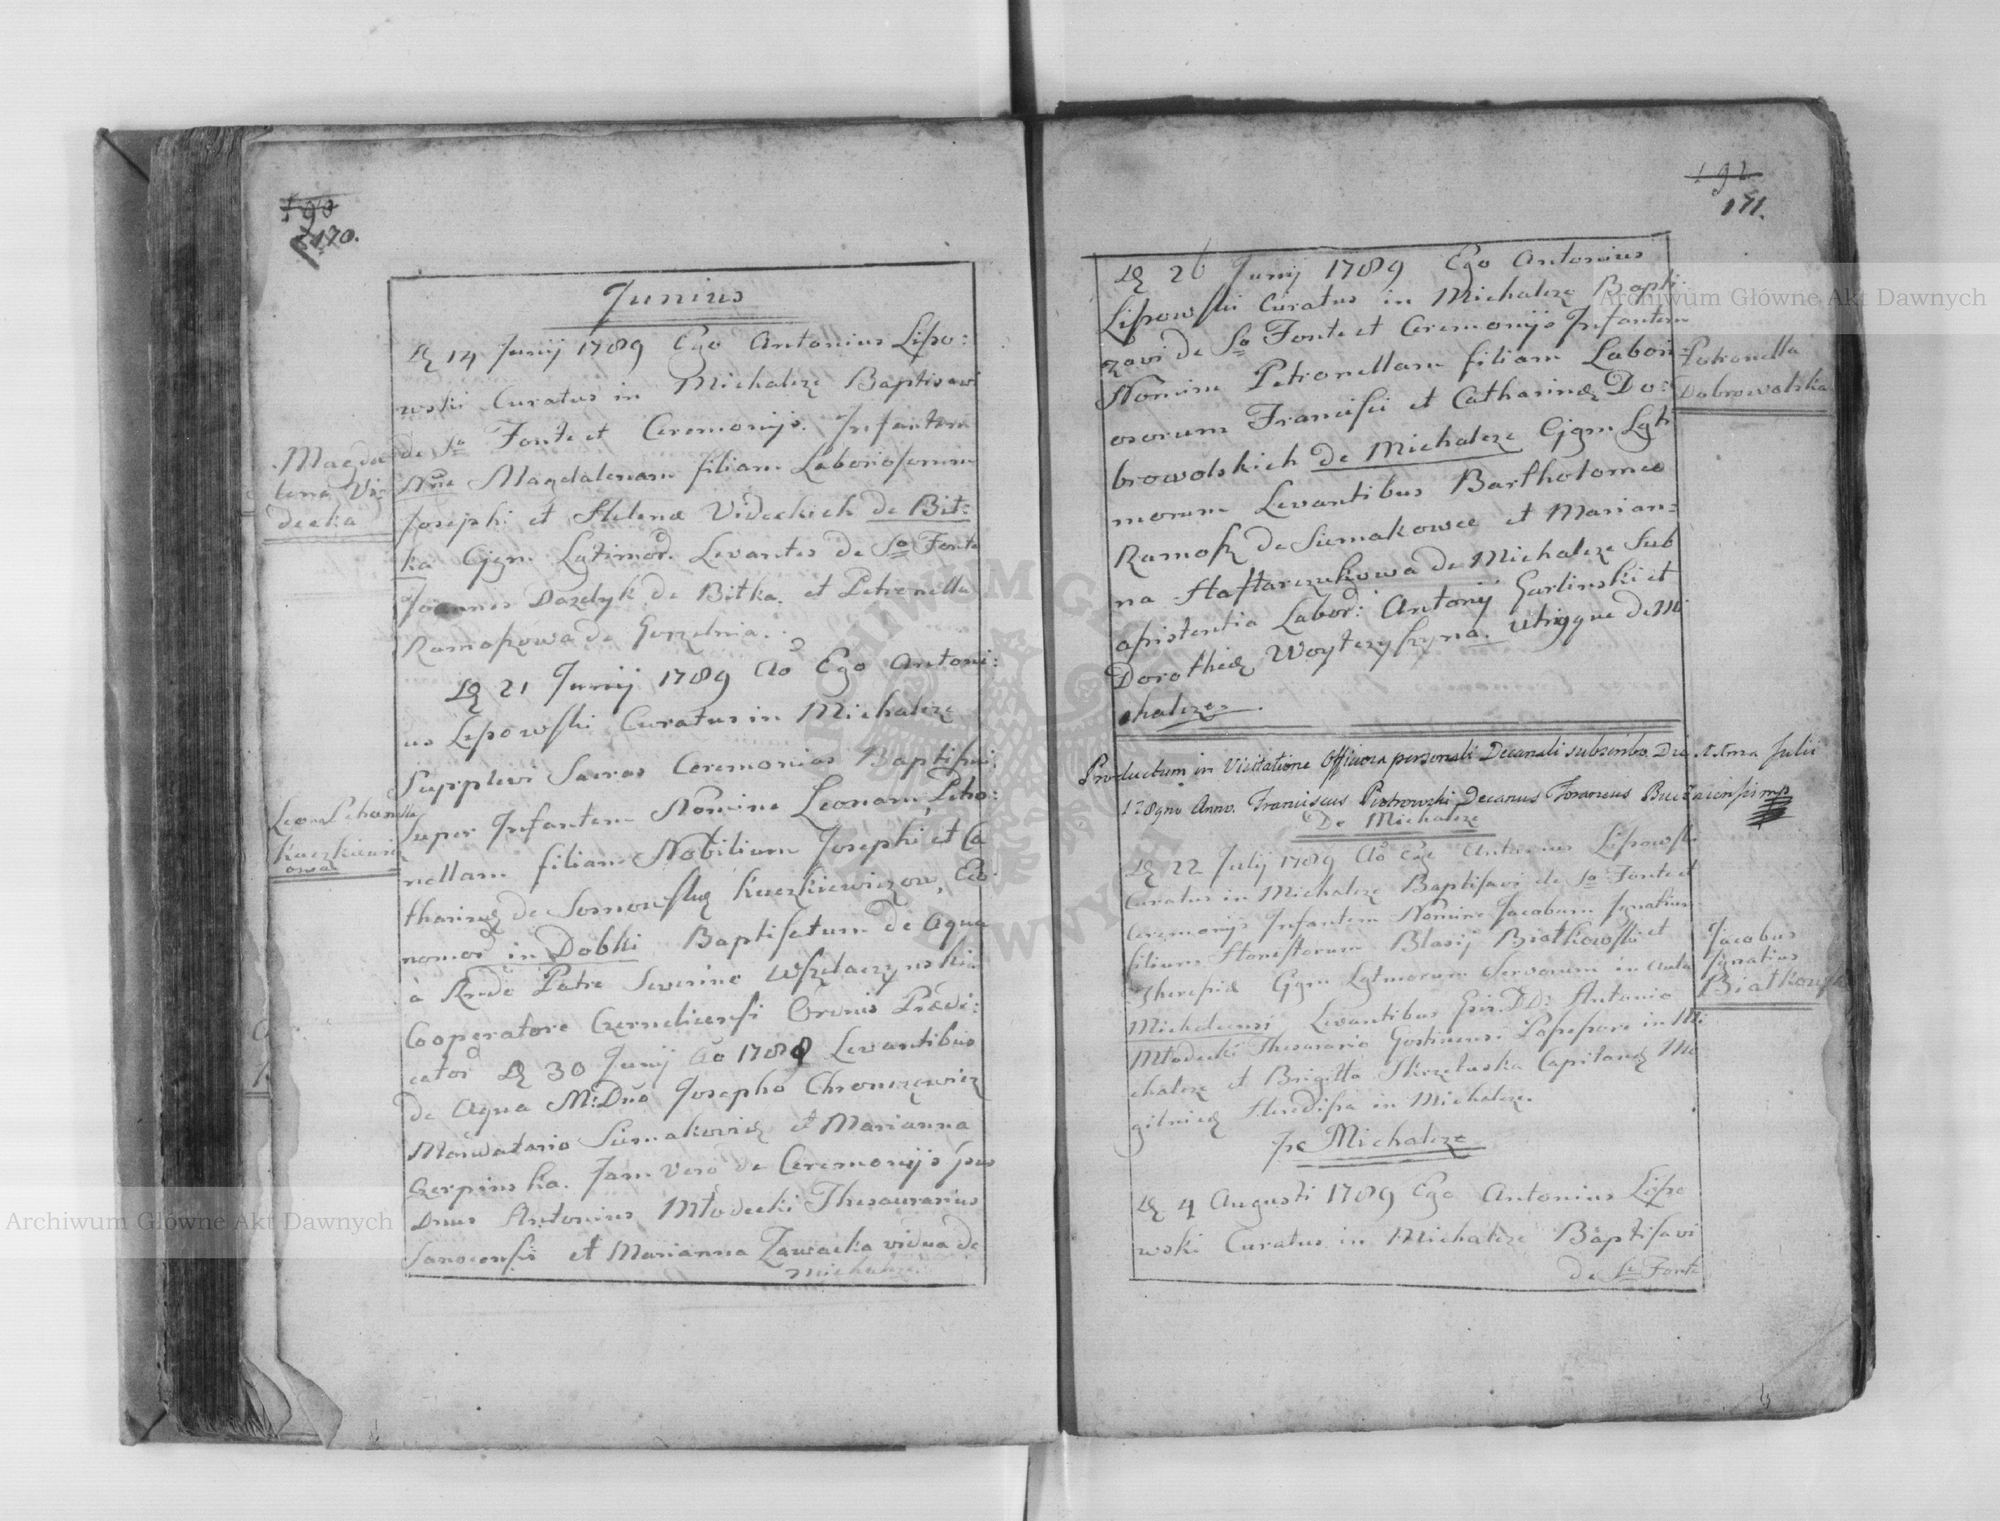 190
170.
Junius
D 14 Junij 1789 Ego Antonius Lipo:
wski Curatus in Michalcze Baptisavi
de So Fonte et Ceremonijs Infantem
Nne Magdalenam filiam Laboriosorum
Josephi et Helenæ Videckich de Bit:
ka Ggm Latimor. Levantes de So Fonte
Joannes Dazdyk de Bitka. et Petronella
de Gorzelnia.
Magda
lena Vi:
decka
D 21 Junij 1789 Ao Ego Antoni:
us Lipowski Curatus in Michalcze
Supplevi Sacras Ceremonias Baptismi
super Infantem Nomine Leonam, Petro:
nellam filiam Nobilium Josephi et Ca
tharinæ de Kuczkiewiczow, Eco:
nomor in Dobki Baptisatum de Aqua
à Rndo Patre Severino
Cooperatore Czernelicensi Ordinis Prædi:
cator D 30 Junij Ao 1788 Levantibus
de Aqua M:Dno Josepho
Mandatario Siemakoviæ et Marianna
Czerpinska. Jam vero de Ceremonijs
Dnus Antonius Młodecki Thesaurarius
Sanocensis et Marianna Zawacka vidua de
Michalcze.
Leona Petronella
Kuczkiewicz
owa
192
171.
D 26 Junij 1789 Ego Antonius
Lipowski Curatus in Michalcze Bapti
zavi de So Fonte et Ceremonijs Infantem
Nomine Petronellam filiam Labori:
osorum Francisci et Catharinæ Do:
browolskich de Michalcze Ggm Lgti
morum Levantibus Bartholomeo
de Siemakowce et Marian:
na Haftarczukowa de Michalcze sub
assistentia Labor: Antonij Garlinski et
Dorotheæ Utrique de Mi
chalcze.
Petronella
Dobrowolska
Productum in Visitatione Officiosa personali Decanali subscribo. Die Julii
1789no Anno. Franciscus Piotrowski Decanus Foraneus mp
De Michalcze
D 22 Julij 1789 Ao Ego Antonius Lipowski
Curatus in Michalcze Baptisavi de So Fonte et
Ceremonijs Infantem Nomine Jacobum Ignatium
filium Honestorum Blasij Białkowski et
Theresiæ Ggm Lgtmorum Servorum in Aula
Michalcensi Levantibus DD: Antonio
Młodecki Thesaurario Possessore in Mi
chalcze et Brigitta Skrzetuska Capitaneæ Mo
gilnicæ in Michalcze.
Jacobus
Ignatius
Białkowski
Michalcze
D 4 Augusti 1789 Ego Antonius Lipo
wski Curatus in Michalcze Baptisavi
de So Fonte
Archiwum Główne Akt Dawnych
Archiwum Główne Akt Dawnych